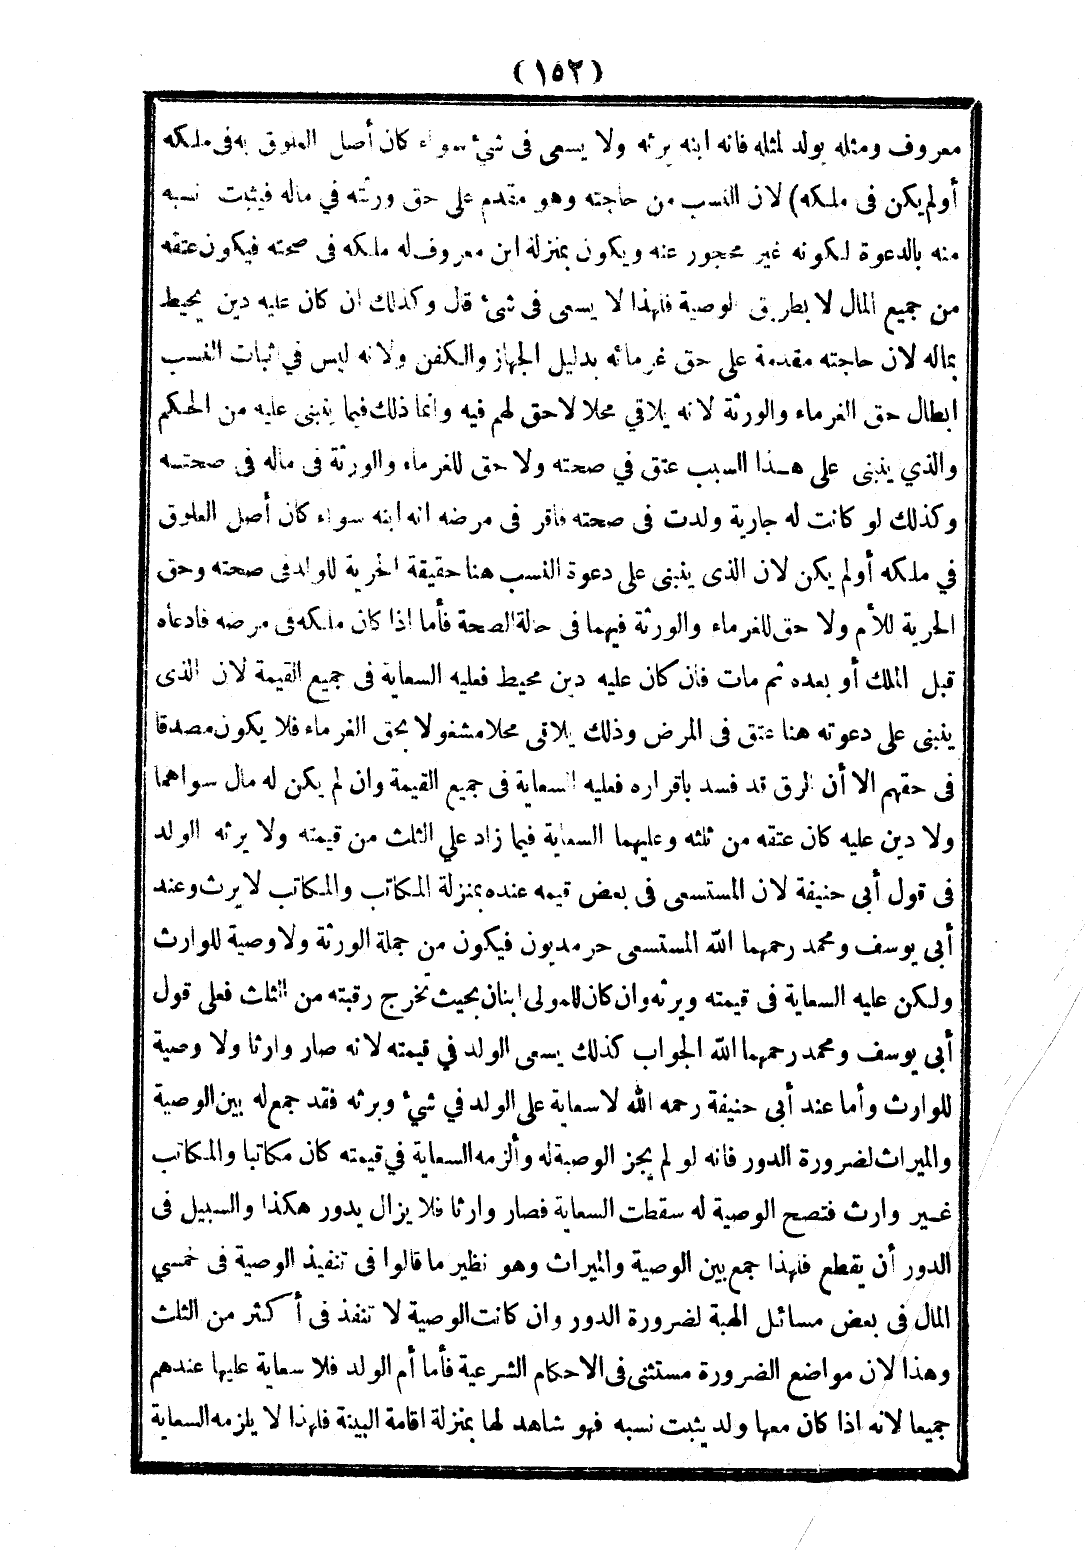 (١٥٢)
معروف ومثله يولد لمثله فانه ابنه يرثه ولا يسعى فى شئ سواء كان أصل العلوق به فى ملكه
أولم يكن فى ملكه) لان النسب من حاجته وهو مقدم على حق ورثته في ماله فيثبت نسبه
منه بالدعوة لكونه غير محجور عنه ويكون بمنزلة ابن معروف له ملكه فى صحته فيكون عتقه
من جميع المال لا بطريق الوصية فلهذا لا يسعى فى شئ قال وكذلك ان كان عليه دين يحيط
بماله لان حاجته مقدمة على حق غرمائه بدليل الجهاز والكفن ولانه ليس في اثبات النسب
ابطال حق الغرماء والورثة لانه يلاقي محلا لاحق لهم فيه وانما ذلك فيما ينبنى عليه من الحكم
والذي ينبنى على هذا السبب عتق في صحته ولا حق للغرماء والورثة فى ماله فى صحته
وكذلك لو كانت له جارية ولدت فى صحته فاقر فى مرضه انه ابنه سواء كان أصل العلوق
في ملكه أولم يكن لان الذى ينبنى على دعوة النسب هنا حقيقة الحرية للولد فى صحته وحق
الحرية للأم ولا حق للغرماء والورثة فيهما فى حالة الصحة فأما اذا كان ملكه فى مرضه فادعاه
قبل الملك أو بعده ثم مات فان كان عليه دين محيط فعليه السعاية فى جميع القيمة لان الذى
ينبنى على دعوته هنا عتق فى المرض وذلك يلاقى محلا مشغولا بحق الغرماء فلا يكون مصدقا
فى حقهم الا أن الرق قد فسد باقراره فعليه السعاية فى جميع القيمة وان لم يكن له مال سواهما
ولا دين عليه كان عتقه من ثلثه وعليهما السعاية فيما زاد علي الثلث من قيمته ولا يرثه الولد
فى قول أبى حنيفة لان المستسعى فى بعض قيمه عنده بمنزلة المكاتب والمكاتب لا يرث وعند
أبى يوسف ومحمد رحمهما الله المستسعى حر مديون فيكون من جملة الورثة ولا وصية للوارث
ولكن عليه السعاية فى قيمته ويرثه وان كان للمولى ابنان بحيث تخرج رقبته من الثلث فعلى قول
أبى يوسف ومحمد رحمهما الله الجواب كذلك يسعى الولد في قيمته لانه صار وارثا ولا وصية
للوارث وأما عند أبى حنيفة رحمه الله لا سعاية على الولد في شئ ويرثه فقد جمع له بين الوصية
والميراث لضرورة الدور فانه لو لم يجز الوصية له وألزمه السعاية في قيمته كان مكاتبا والمكاتب
غير وارث فتصح الوصية له سقطت السعاية فصار وارثا فلا يزال يدور هكذا والسبيل فى
الدور أن يقطع فلهذا جمع بين الوصية والميراث وهو نظير ما قالوا فى تنفيذ الوصية فى خمسي
المال فى بعض مسائل الهبة لضرورة الدور وان كانت الوصية لا تنفذ فى أكثر من الثلث
وهذا لان مواضع الضرورة مستثنى فى الاحكام الشرعية فأما أم الولد فلا سعاية عليها عندهم
جميعا لانه اذا كان معها ولد يثبت نسبه فهو شاهد لها بمنزلة اقامة البينة فلهذا لا يلزمه السعاية